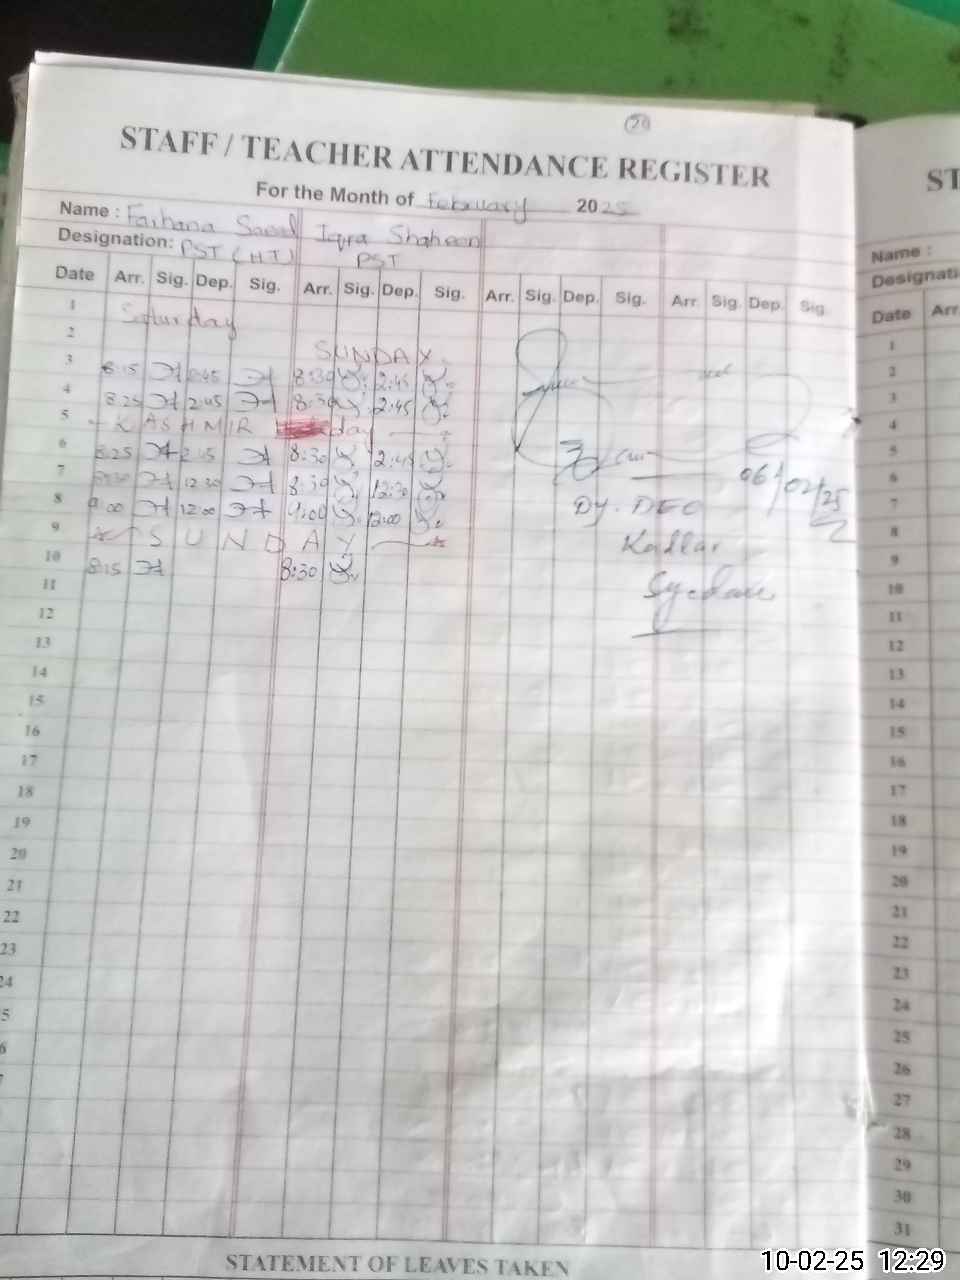 29
STAFF / TEACHER ATTENDANCE REGISTER
For the Month of February 2025
Name : Farhana Saeed Iqra Shaheen
Designation: PST (HT) PST
Date Arr. Sig. Dep. Sig. Arr. Sig. Dep. Sig. Arr. Sig. Dep. Sig. Arr. Sig. Dep. Sig.
1 Saturday
2 SUNDAY
3 8:15 2:45 8:30 2:45
4 8:25 2:45 8:30 2:45
5 KASHMIR day
6 8:25 2:45 8:30 2:45
7 8:30 12:30 8:30 12:30
8 9:00 12:00 9:00 12:00
9 SUNDAY
10 8:15 8:30
11
12
13
14
15
16
17
18
19
20
21
22
23
24
5
6
7
06/02/25
Dy. DEO
Kallar
Syedan
STATEMENT OF LEAVES TAKEN
ST
Name :
Designati
Date Arr
1
2
3
4
5
6
7
8
9
10
11
12
13
14
15
16
17
18
19
20
21
22
23
24
25
26
27
28
29
30
31
10-02-25 12:29